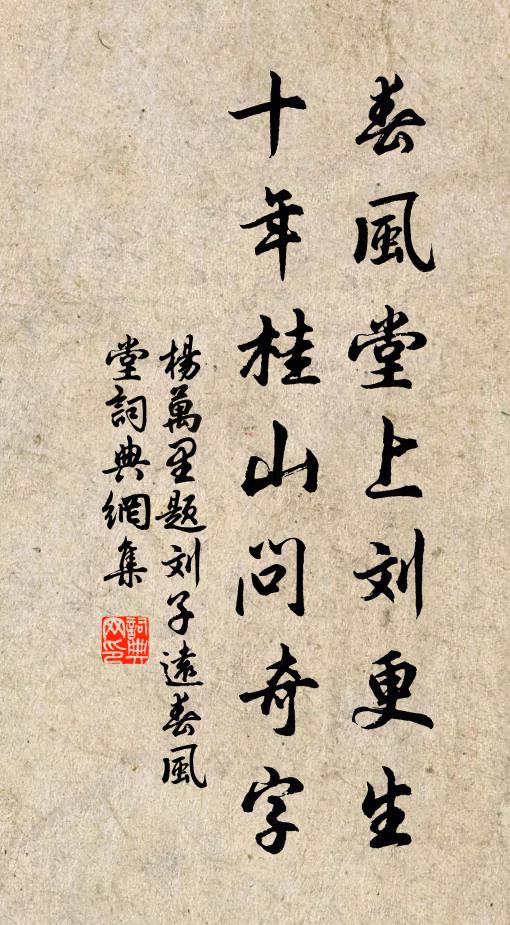 春風堂上刘更生
十年桂山問奇字
楊萬里题刘子遠春風
堂詞典網集
詞典网印